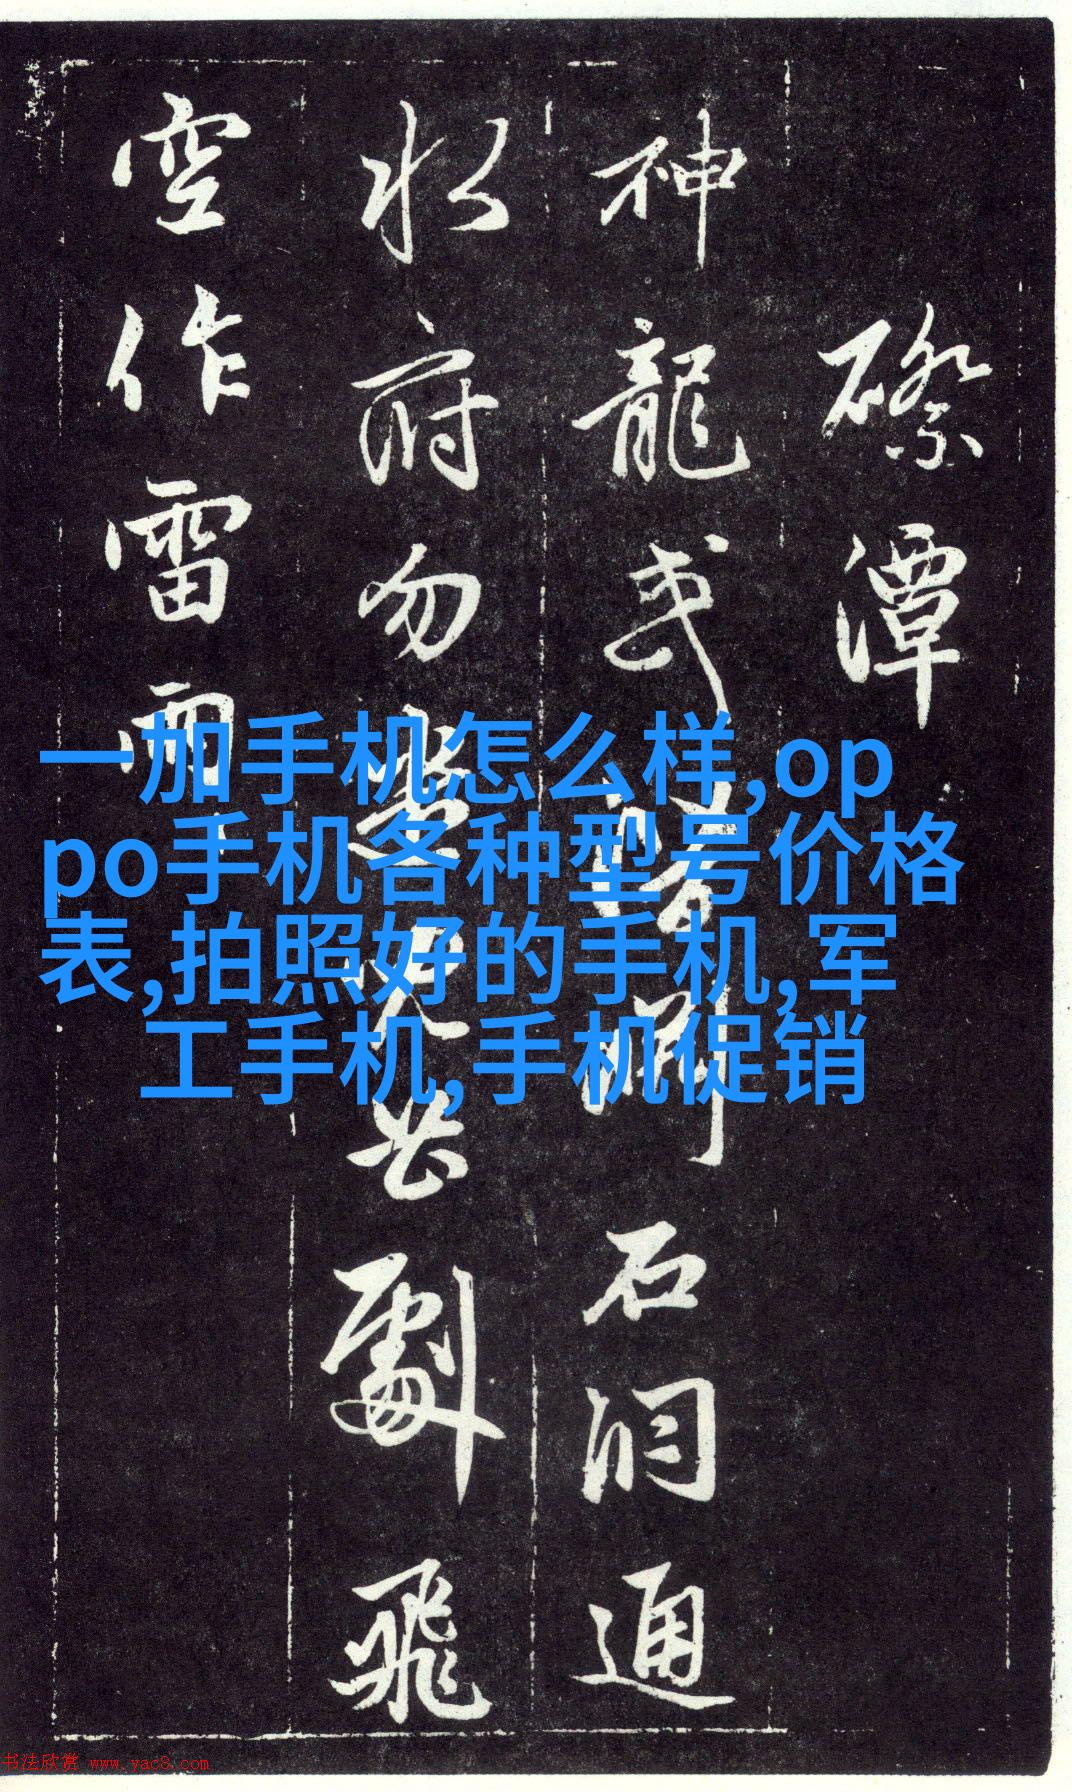 磜潭
神龍或潛淵石洞通
水府勿鑿山骨劚飛
空作雷雨
一加手机怎么样,op
po手机各种型号价格
表,拍照好的手机,军
工手机,手机促销
书法欣赏 www.yac8.com